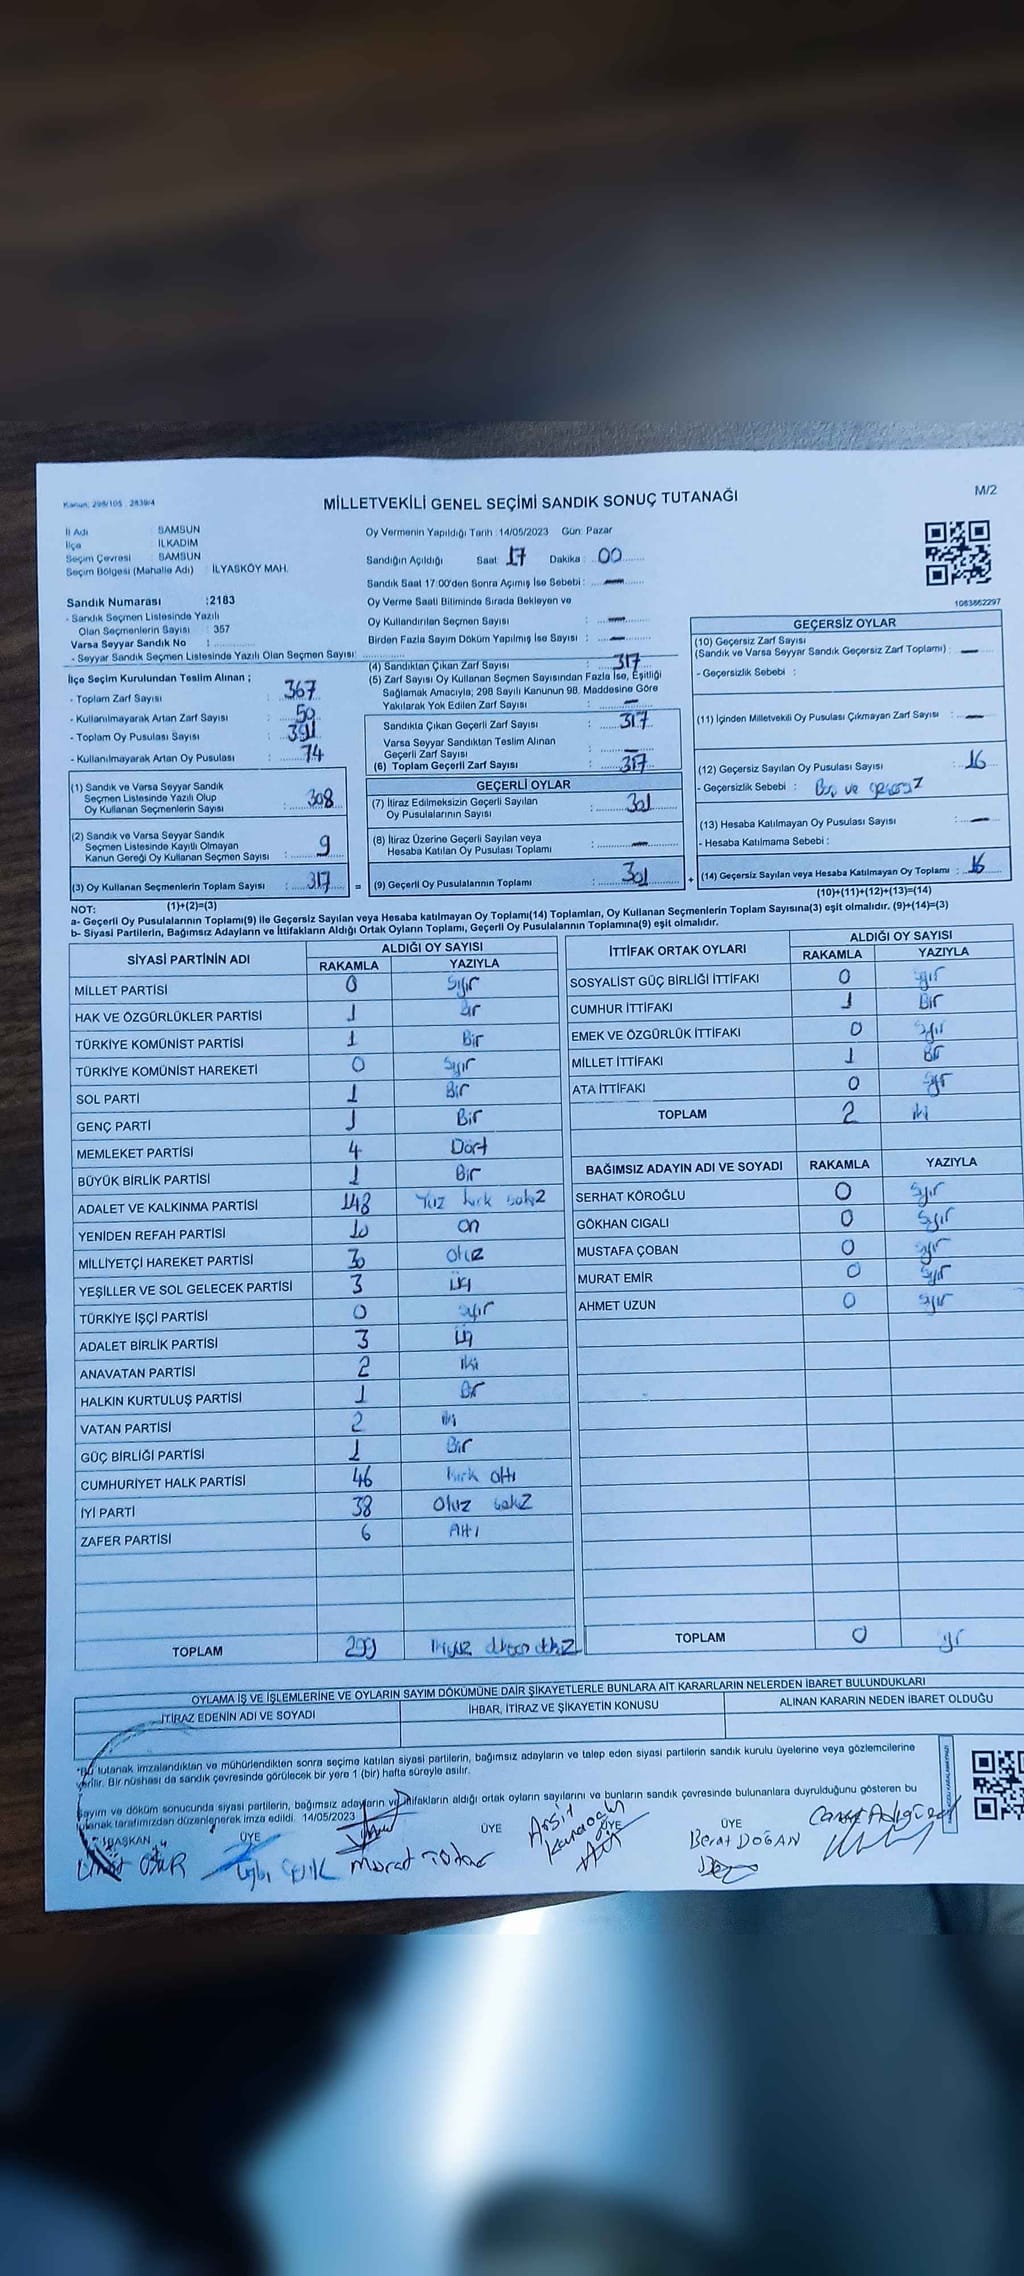 Kanun: 298/105 2839/4
MİLLETVEKİLİ GENEL SEÇİMİ SANDIK SONUÇ TUTANAĞI
M/2
İl Adı : SAMSUN
İlçe : İLKADIM
Seçim Çevresi : SAMSUN
Seçim Bölgesi (Mahalle Adı) : İLYASKÖY MAH.
Sandık Numarası :2183
- Sandık Seçmen Listesinde Yazılı
Olan Seçmenlerin Sayısı : 357
Varsa Seyyar Sandık No :
- Seyyar Sandık Seçmen Listesinde Yazılı Olan Seçmen Sayısı:
Oy Vermenin Yapıldığı Tarih :14/05/2023 Gün: Pazar
Sandığın Açıldığı Saat 17 Dakika : 00
Sandık Saat 17.00'den Sonra Açımış İse Sebebi : —
Oy Verme Saati Bitiminde Sırada Bekleyen ve
Oy Kullandırılan Seçmen Sayısı : —
Birden Fazla Sayım Döküm Yapılmış İse Sayısı : —
1083862297
İlçe Seçim Kurulundan Teslim Alınan ;
- Toplam Zarf Sayısı : 367
- Kullanılmayarak Artan Zarf Sayısı : 50
- Toplam Oy Pusulası Sayısı : 391
- Kullanılmayarak Artan Oy Pusulası : 74
(1) Sandık ve Varsa Seyyar Sandık
Seçmen Listesinde Yazılı Olup
Oy Kullanan Seçmenlerin Sayısı : 308
(2) Sandık ve Varsa Seyyar Sandık
Seçmen Listesinde Kayıtlı Olmayan
Kanun Gereği Oy Kullanan Seçmen Sayısı : 9
(3) Oy Kullanan Seçmenlerin Toplam Sayısı : 317 =
(1)+(2)=(3)
(4) Sandıktan Çıkan Zarf Sayısı : 317
(5) Zarf Sayısı Oy Kullanan Seçmen Sayısından Fazla İse, Eşitliği
Sağlamak Amacıyla; 298 Sayılı Kanunun 98. Maddesine Göre
Yakılarak Yok Edilen Zarf Sayısı : —
Sandıkta Çıkan Geçerli Zarf Sayısı : 317
Varsa Seyyar Sandıktan Teslim Alınan
Geçerli Zarf Sayısı : —
(6) Toplam Geçerli Zarf Sayısı : 317
GEÇERLİ OYLAR
(7) İtiraz Edilmeksizin Geçerli Sayılan
Oy Pusulalarının Sayısı : 301
(8) İtiraz Üzerine Geçerli Sayılan veya
Hesaba Katılan Oy Pusulası Toplamı : —
(9) Geçerli Oy Pusulalarının Toplamı : 301 +
GEÇERSİZ OYLAR
(10) Geçersiz Zarf Sayısı
(Sandık ve Varsa Seyyar Sandık Geçersiz Zarf Toplamı) : —
- Geçersizlik Sebebi :
(11) İçinden Milletvekili Oy Pusulası Çıkmayan Zarf Sayısı : —
(12) Geçersiz Sayılan Oy Pusulası Sayısı : 16
- Geçersizlik Sebebi : Boş ve geçersiz
(13) Hesaba Katılmayan Oy Pusulası Sayısı : —
- Hesaba Katılmama Sebebi :
(14) Geçersiz Sayılan veya Hesaba Katılmayan Oy Toplamı : 16
(10)+(11)+(12)+(13)=(14)
NOT:
a- Geçerli Oy Pusulalarının Toplamı(9) ile Geçersiz Sayılan veya Hesaba katılmayan Oy Toplamı(14) Toplamları, Oy Kullanan Seçmenlerin Toplam Sayısına(3) eşit olmalıdır. (9)+(14)=(3)
b- Siyasi Partilerin, Bağımsız Adayların ve İttifakların Aldığı Ortak Oyların Toplamı, Geçerli Oy Pusulalarının Toplamına(9) eşit olmalıdır.
SİYASİ PARTİNİN ADI ALDIĞI OY SAYISI
RAKAMLA YAZIYLA
MİLLET PARTİSİ 0 Sıfır
HAK VE ÖZGÜRLÜKLER PARTİSİ 1 Bir
TÜRKİYE KOMÜNİST PARTİSİ 1 Bir
TÜRKİYE KOMÜNİST HAREKETİ 0 Sıfır
SOL PARTİ 1 Bir
GENÇ PARTİ 1 Bir
MEMLEKET PARTİSİ 4 Dört
BÜYÜK BİRLİK PARTİSİ 1 Bir
ADALET VE KALKINMA PARTİSİ 148 Yüz kırk sekiz
YENİDEN REFAH PARTİSİ 10 on
MİLLİYETÇİ HAREKET PARTİSİ 30 otuz
YEŞİLLER VE SOL GELECEK PARTİSİ 3 üç
TÜRKİYE İŞÇİ PARTİSİ 0 sıfır
ADALET BİRLİK PARTİSİ 3 üç
ANAVATAN PARTİSİ 2 iki
HALKIN KURTULUŞ PARTİSİ 1 Bir
VATAN PARTİSİ 2 iki
GÜÇ BİRLİĞİ PARTİSİ 1 Bir
CUMHURİYET HALK PARTİSİ 46 kırk altı
İYİ PARTİ 38 Otuz sekiz
ZAFER PARTİSİ 6 Altı
TOPLAM 299 ikiyüz doksan dokuz
İTTİFAK ORTAK OYLARI ALDIĞI OY SAYISI
RAKAMLA YAZIYLA
SOSYALİST GÜÇ BİRLİĞİ İTTİFAKI 0 sıfır
CUMHUR İTTİFAKI 1 Bir
EMEK VE ÖZGÜRLÜK İTTİFAKI 0 sıfır
MİLLET İTTİFAKI 1 Bir
ATA İTTİFAKI 0 sıfır
TOPLAM 2 iki
BAĞIMSIZ ADAYIN ADI VE SOYADI RAKAMLA YAZIYLA
SERHAT KÖROĞLU 0 Sıfır
GÖKHAN CIGALI 0 Sıfır
MUSTAFA ÇOBAN 0 sıfır
MURAT EMİR 0 sıfır
AHMET UZUN 0 sıfır
TOPLAM 0
OYLAMA İŞ VE İŞLEMLERİNE VE OYLARIN SAYIM DÖKÜMÜNE DAİR ŞİKAYETLERLE BUNLARA AİT KARARLARIN NELERDEN İBARET BULUNDUKLARI
İTİRAZ EDENİN ADI VE SOYADI İHBAR, İTİRAZ VE ŞİKAYETİN KONUSU ALINAN KARARIN NEDEN İBARET OLDUĞU
*Bu tutanak imzalandıktan ve mühürlendikten sonra seçime katılan siyasi partilerin, bağımsız adayların ve talep eden siyasi partilerin sandık kurulu üyelerine veya gözlemcilerine
verilir. Bir nüshası da sandık çevresinde görülecek bir yere 1 (bir) hafta süreyle asılır.
Sayım ve döküm sonucunda siyasi partilerin, bağımsız adayların ve ittifakların aldığı ortak oyların sayılarını ve bunların sandık çevresinde bulunanlara duyrulduğunu gösteren bu
tutanak tarafımızdan düzenlenerek imza edildi. 14/05/2023
BAŞKAN ÜYE ÜYE ÜYE ÜYE
Murat Berat DOĞAN